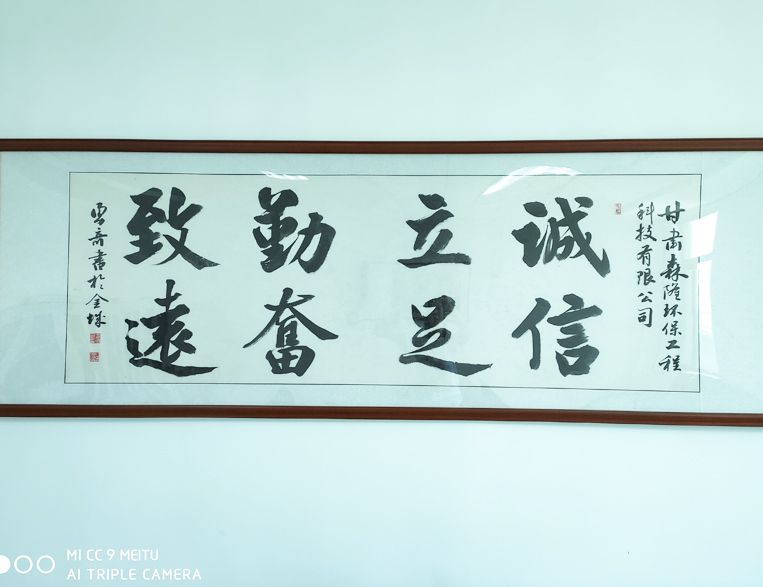 甘肃森隆环保工程
科技有限公司
誠信
立足
勤奮
致遠
雪斋書於金城
MI CC 9 MEITU
AI TRIPLE CAMERA